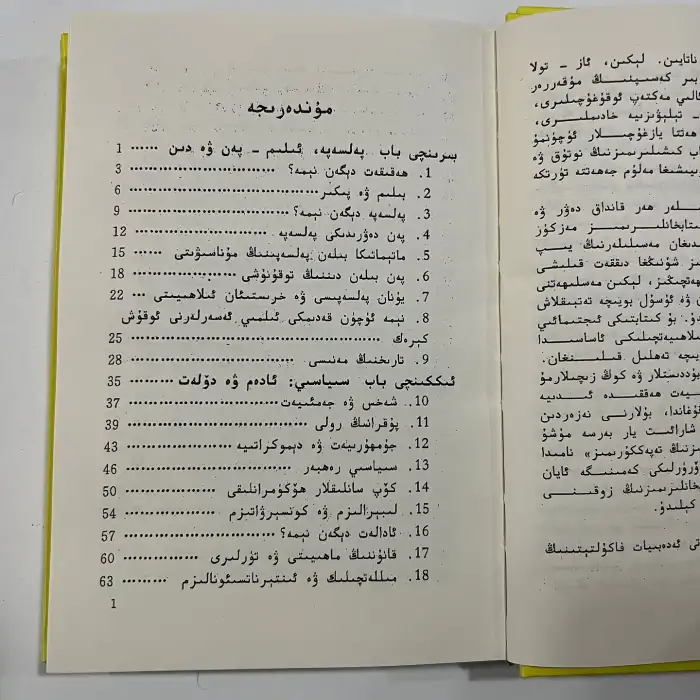 مۇندەرىجە
بىرىنچى باب پەلسەپە، ئىلىم - پەن ۋە دىن ...... 1
1. ھەقىقەت دېگەن نېمە؟ ...... 3
2. بىلىم ۋە پىكىر ...... 6
3. پەلسەپە دېگەن نېمە؟ ...... 9
4. پەن دەۋرىدىكى پەلسەپە ...... 12
5. ماتېماتىكا بىلەن پەلسەپىنىڭ مۇناسىۋىتى ...... 15
6. پەن بىلەن دىننىڭ توقۇنۇشى ...... 18
7. يۇنان پەلسەپىسى ۋە خرىستىئان ئىلاھىيىتى ... 22
8. نېمە ئۈچۈن قەدىمكى ئىلمىي ئەسەرلەرنى ئوقۇش
كېرەك ...... 25
9. تارىخنىڭ مەنىسى ...... 28
ئىككىنچى باب سىياسىي: ئادەم ۋە دۆلەت ...... 35
10. شەخس ۋە جەمئىيەت ...... 37
11. پۇقرانىڭ رولى ...... 39
12. جۇمھۇرىيەت ۋە دېموكراتىيە ...... 43
13. سىياسىي رەھبەر ...... 46
14. كۆپ سانلىقلار ھۆكۈمرانلىقى ...... 50
15. لىبېرالىزم ۋە كونسېرۋاتىزم ...... 54
16. ئادالەت دېگەن نېمە؟ ...... 57
17. قانۇننىڭ ماھىيىتى ۋە تۈرلىرى ...... 60
18. مىللەتچىلىك ۋە ئىنتېرناتسىئونالىزم ...... 63
1
ناتايىن. لېكىن، ئاز - تولا
بىر كەسىپنىڭ مۇقەررەر
ئالىي مەكتەپ ئوقۇغۇچىلىرى،
- تېلېۋىزىيە خادىملىرى،
ھەتتا يازغۇچىلار ئۈچۈنمۇ
كىشىلىرىمىزنىڭ نوتۇق ۋە
مەلۇم جەھەتتە تۈرتكە
ھەر قانداق دەۋر ۋە
مەزكۇر
مەسىلىلەرنىڭ يىپ
شۇنىڭغا دىققەت قىلىشى
لېكىن مەسلىھەتنى
ۋە ئۇسۇل بويىچە تەتبىقلاش
بۇ كىتابتىكى ئىجتىمائىي
ئاساسىدا
تەھلىل قىلىنغان.
ۋە كوڭ زىچىلارمۇ
ھەققىدە ئىدىيە
بۇلارنى نەزەردىن
شارائىت يار بەرسە مۇشۇ
تەپەككۇرىمىز» نامىدا
كەمىنىگە ئايان
زوقىنى
كېلىدۇ.
ئەدەبىيات فاكۇلتېتىنىڭ